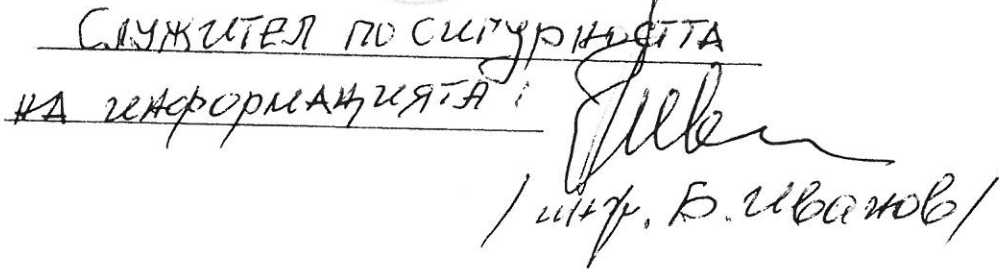 СЛУЖИТЕЛ ПО СИГУРНОСТТА
НА ИНФОРМАЦИЯТА:
/инж. Б. Иванов/